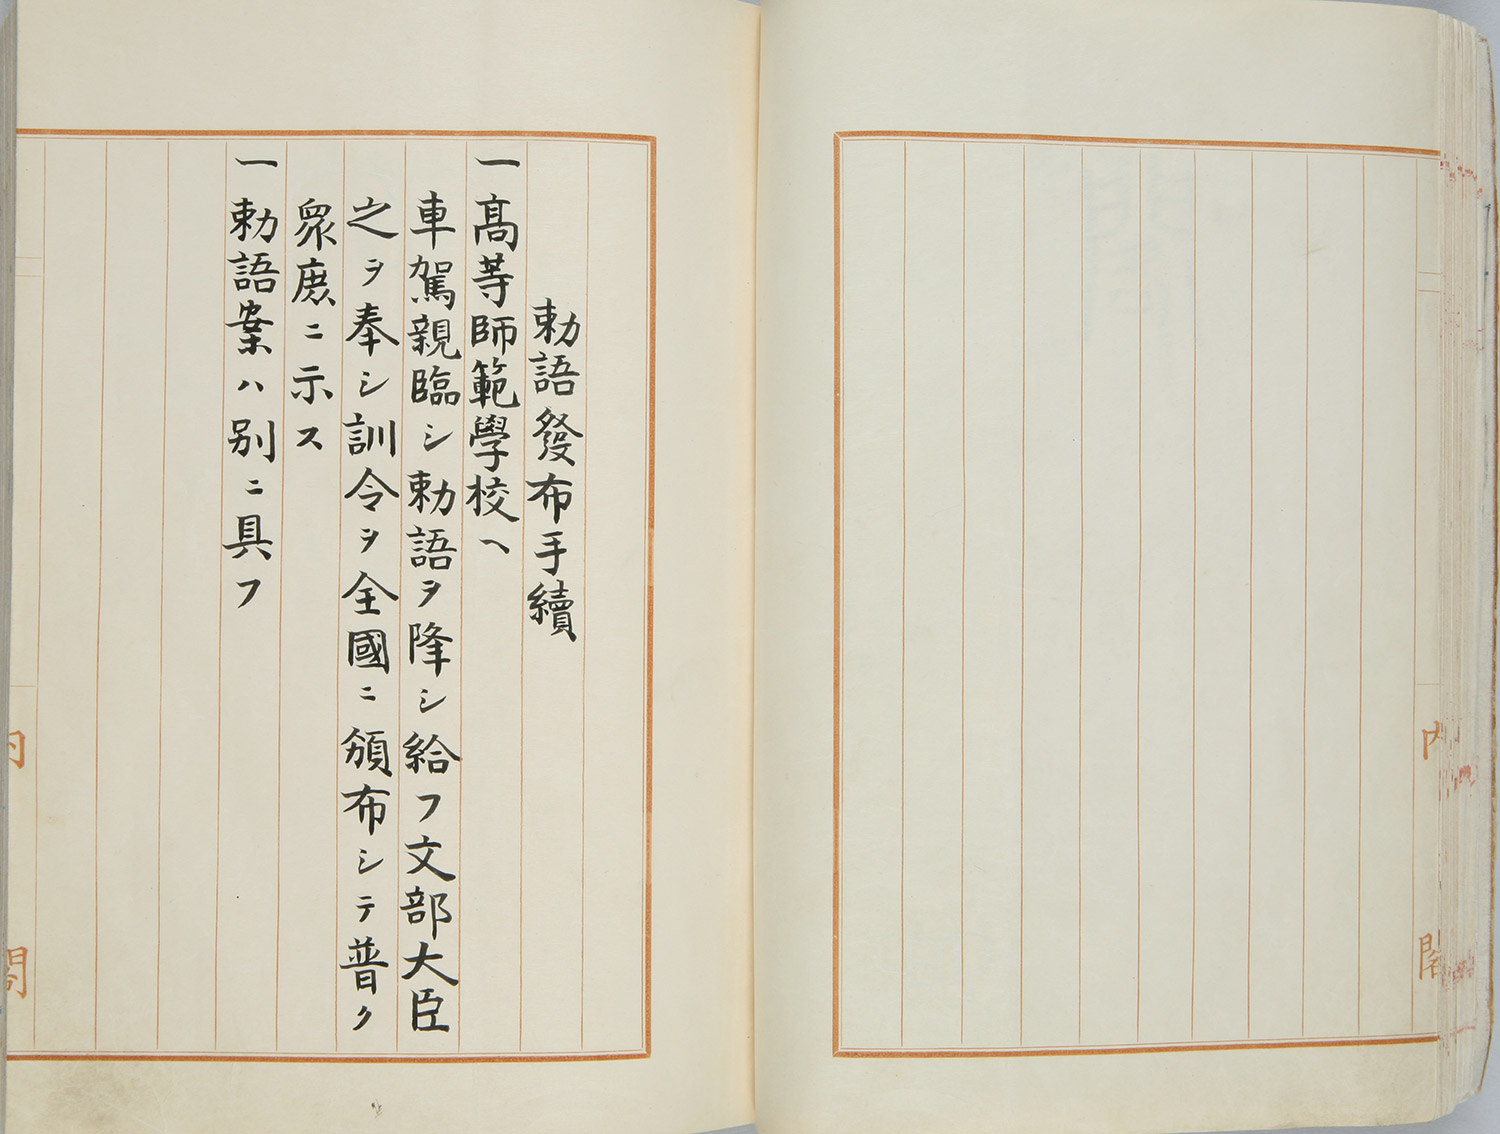 勅語發布手續
一高等師範學校ヘ
車駕親臨シ勅語ヲ降シ給フ文部大臣
之ヲ奉シ訓令ヲ全國ニ頒布シテ普ク
衆庶ニ示ス
一勅語案ハ別ニ具フ
内閣
内閣